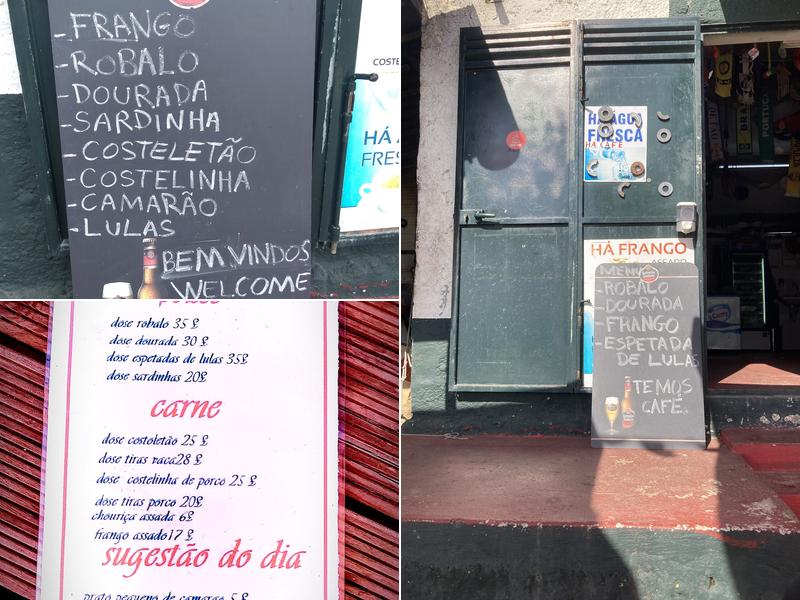 - FRANGO
- ROBALO
- DOURADA
- SARDINHA
- COSTELETÃO
- COSTELINHA
- CAMARÃO
- LULAS
BEM VINDOS
WELCOME
COSTE
HÁ
FRES
dose robalo 35 £
dose dourada 30 £
dose espetadas de lulas 35£
dose sardinhas 20£
carne
dose costoletão 25 £
dose tiras vaca28 £
dose costelinha de porco 25 £
dose tiras porco 20£
chouriça assada 6£
frango assado17 £
sugestão do dia
prato pequeno de camarao 5 £
FRESCA
HÁ CAFÉ
HÁ FRANGO
ASSADO
MENU
- ROBALO
- DOURADA
- FRANGO
- ESPETADA
DE LULAS
TEMOS
CAFÉ.